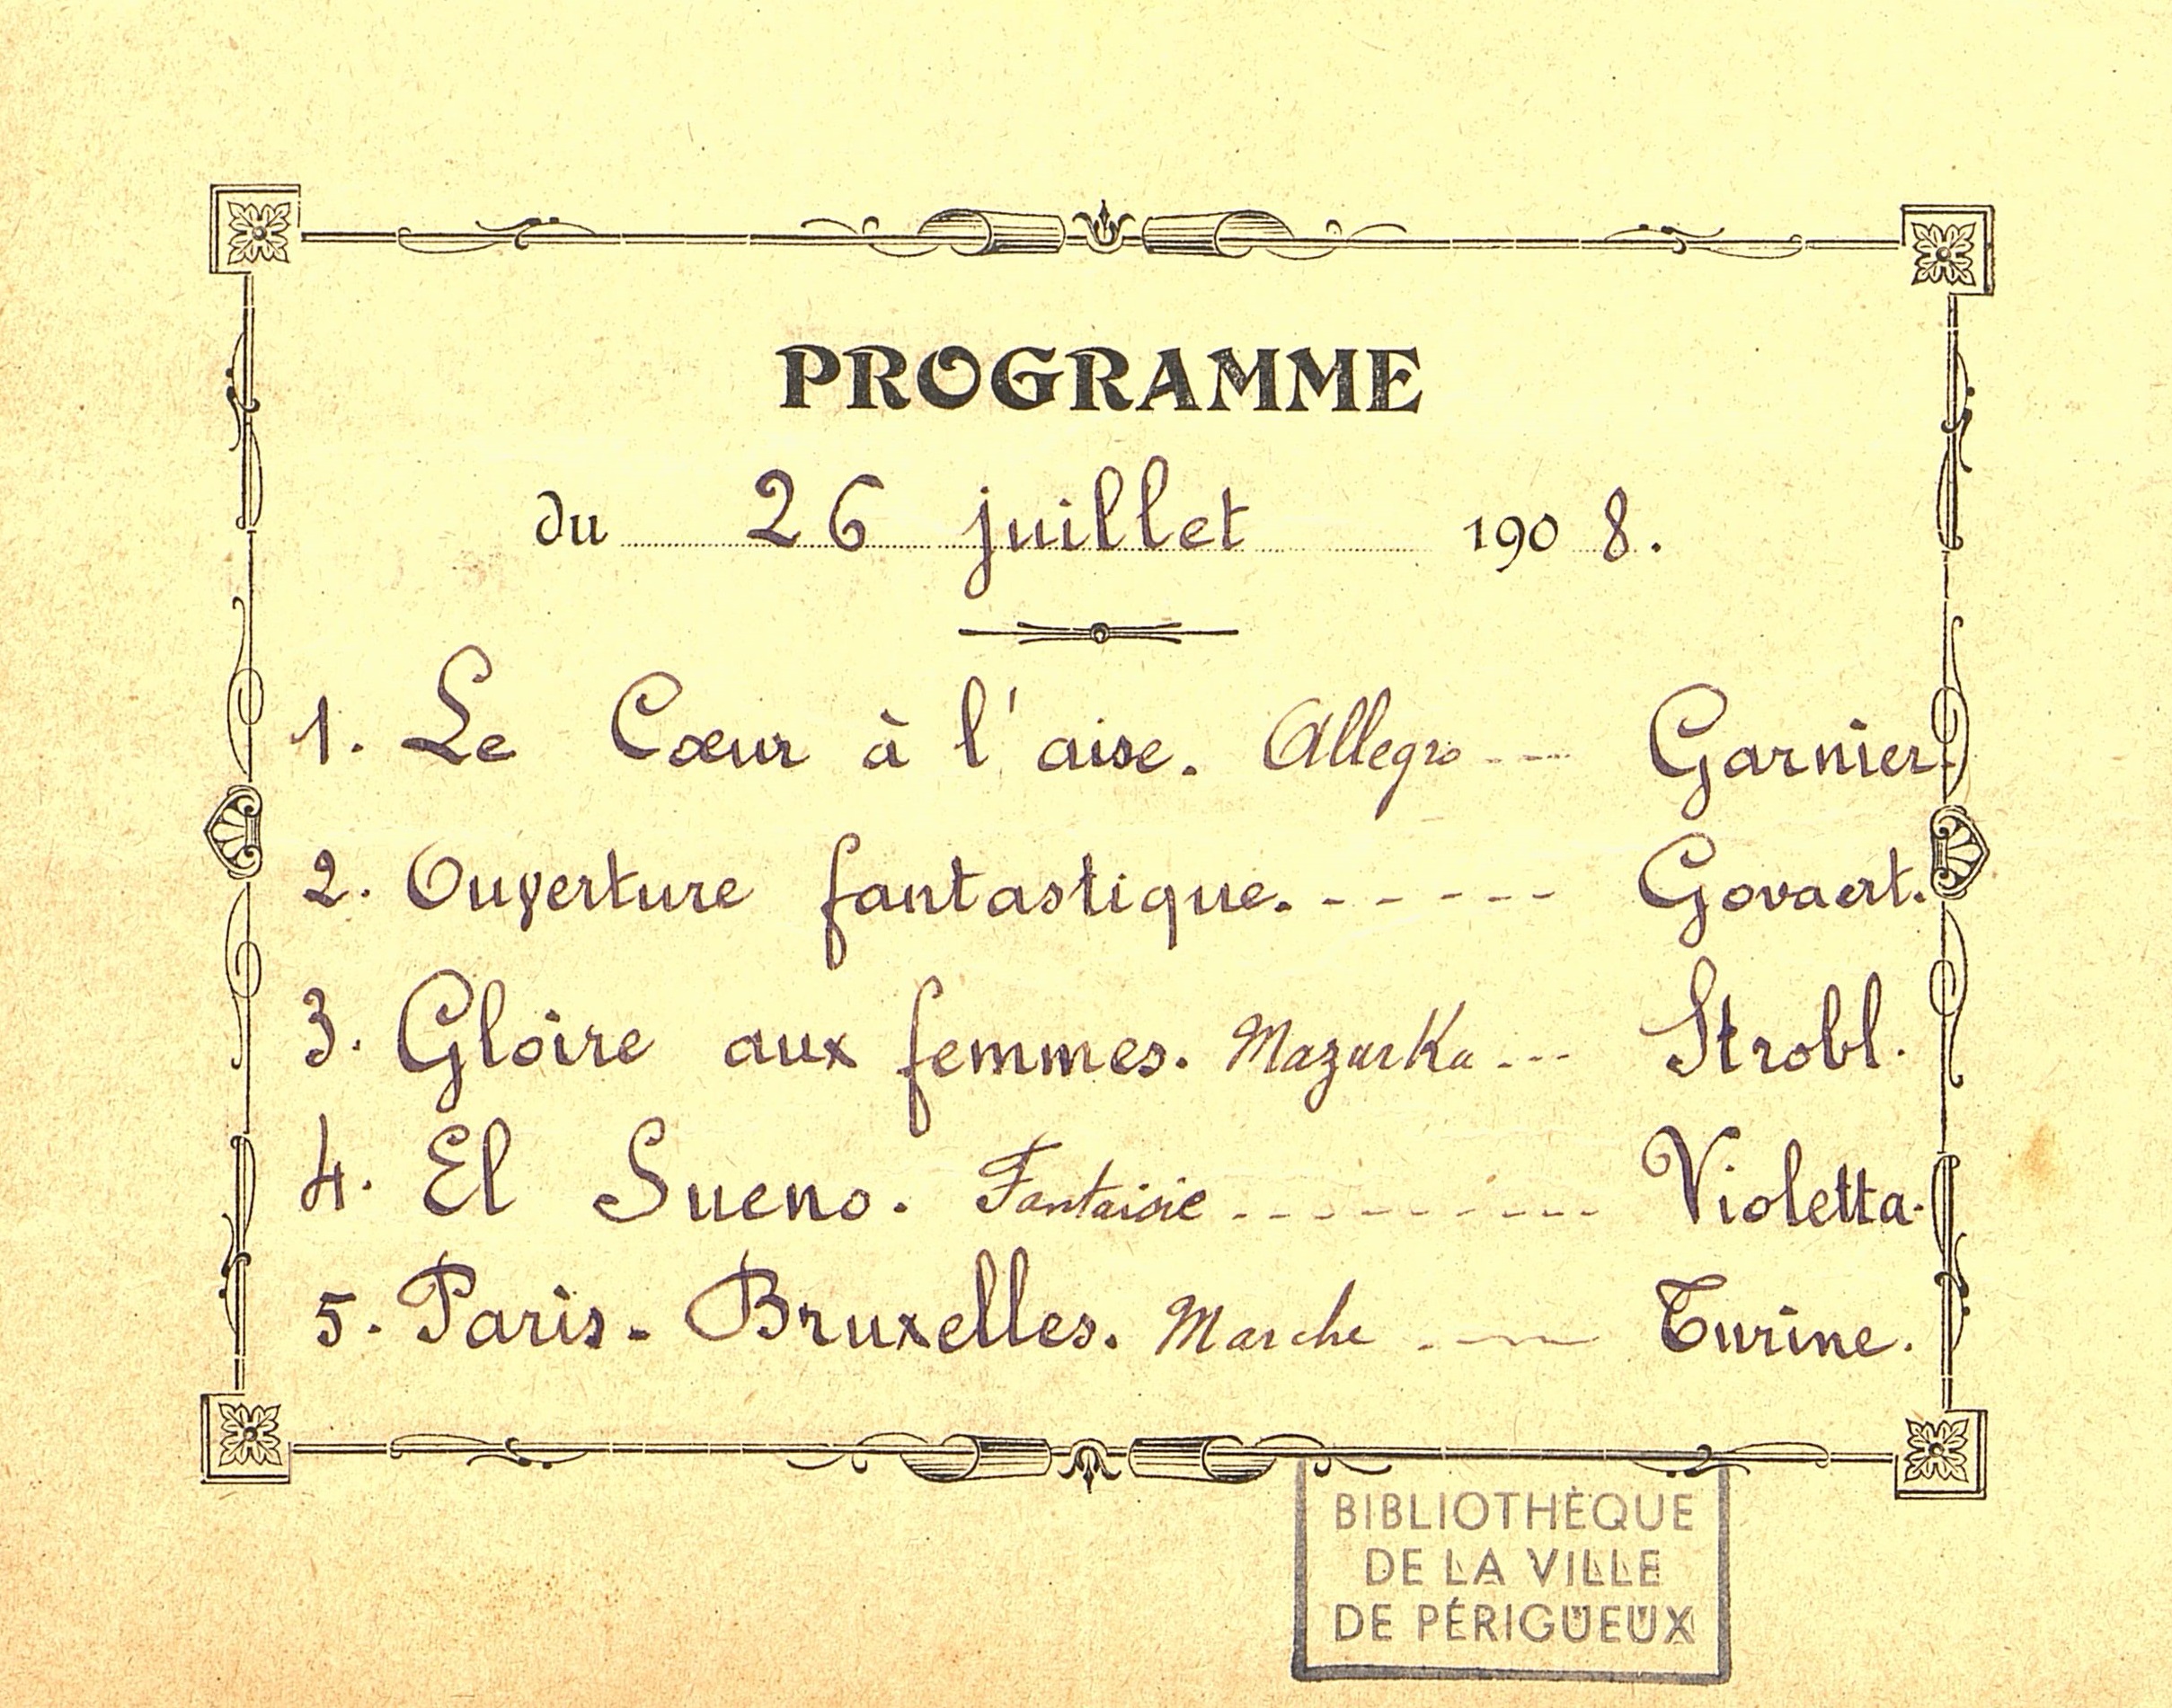 PROGRAMME
du 26 juillet 1908.
1. Le Cœur à l'aise. Allegro --- Garnier.
2. Ouverture fantastique. - - - - - Govaert.
3. Gloire aux femmes. Mazurka --- Strobl.
4. El Sueno. Fantaisie ---------- Violetta.
5. Paris-Bruxelles. Marche --- Turine.
BIBLIOTHÈQUE
DE LA VILLE
DE PÉRIGUEUX